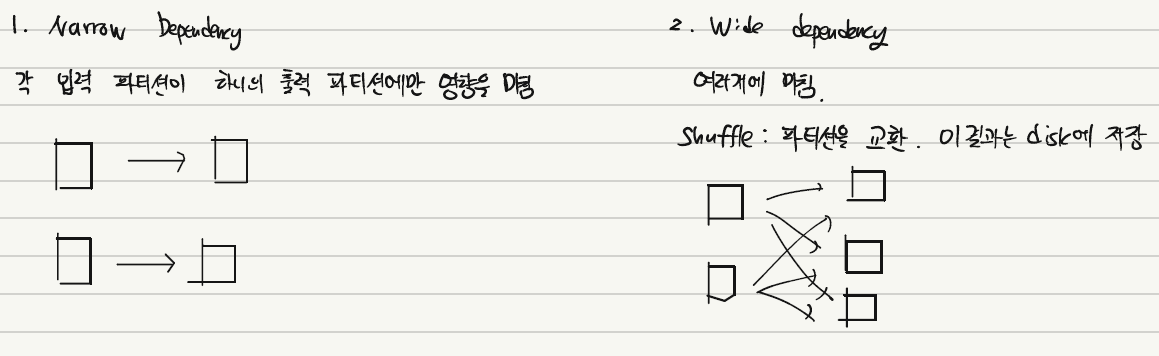 1. Narrow Dependency
각 입력 파티션이 하나의 출력 파티션에만 영향을 미침
2. Wide dependency
여러개에 미침.
Shuffle : 파티션을 교환. 이 결과는 disk에 저장